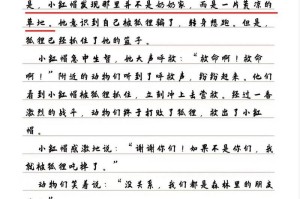 是，小红帽发现那里并不是奶奶家，而是一片荒凉的
草地。她意识到自己被狐狸骗了，转身想跑。但是，
狐狸已经抓住了她的篮子。
小红帽急中生智，她大声呼救：“救命啊！救命
啊！”附近的动物们听到了呼救声，纷纷赶来。他们
看到小红帽被狐狸抓住，立刻冲上去营救。经过一番
激烈的战斗，动物们终于打败了狐狸，救出了小红
帽。
小红帽感激地说：“谢谢你们！如果不是你们，我
就被狐狸吃掉了。”
动物们笑着说：“没关系，我们都是森林里的朋友